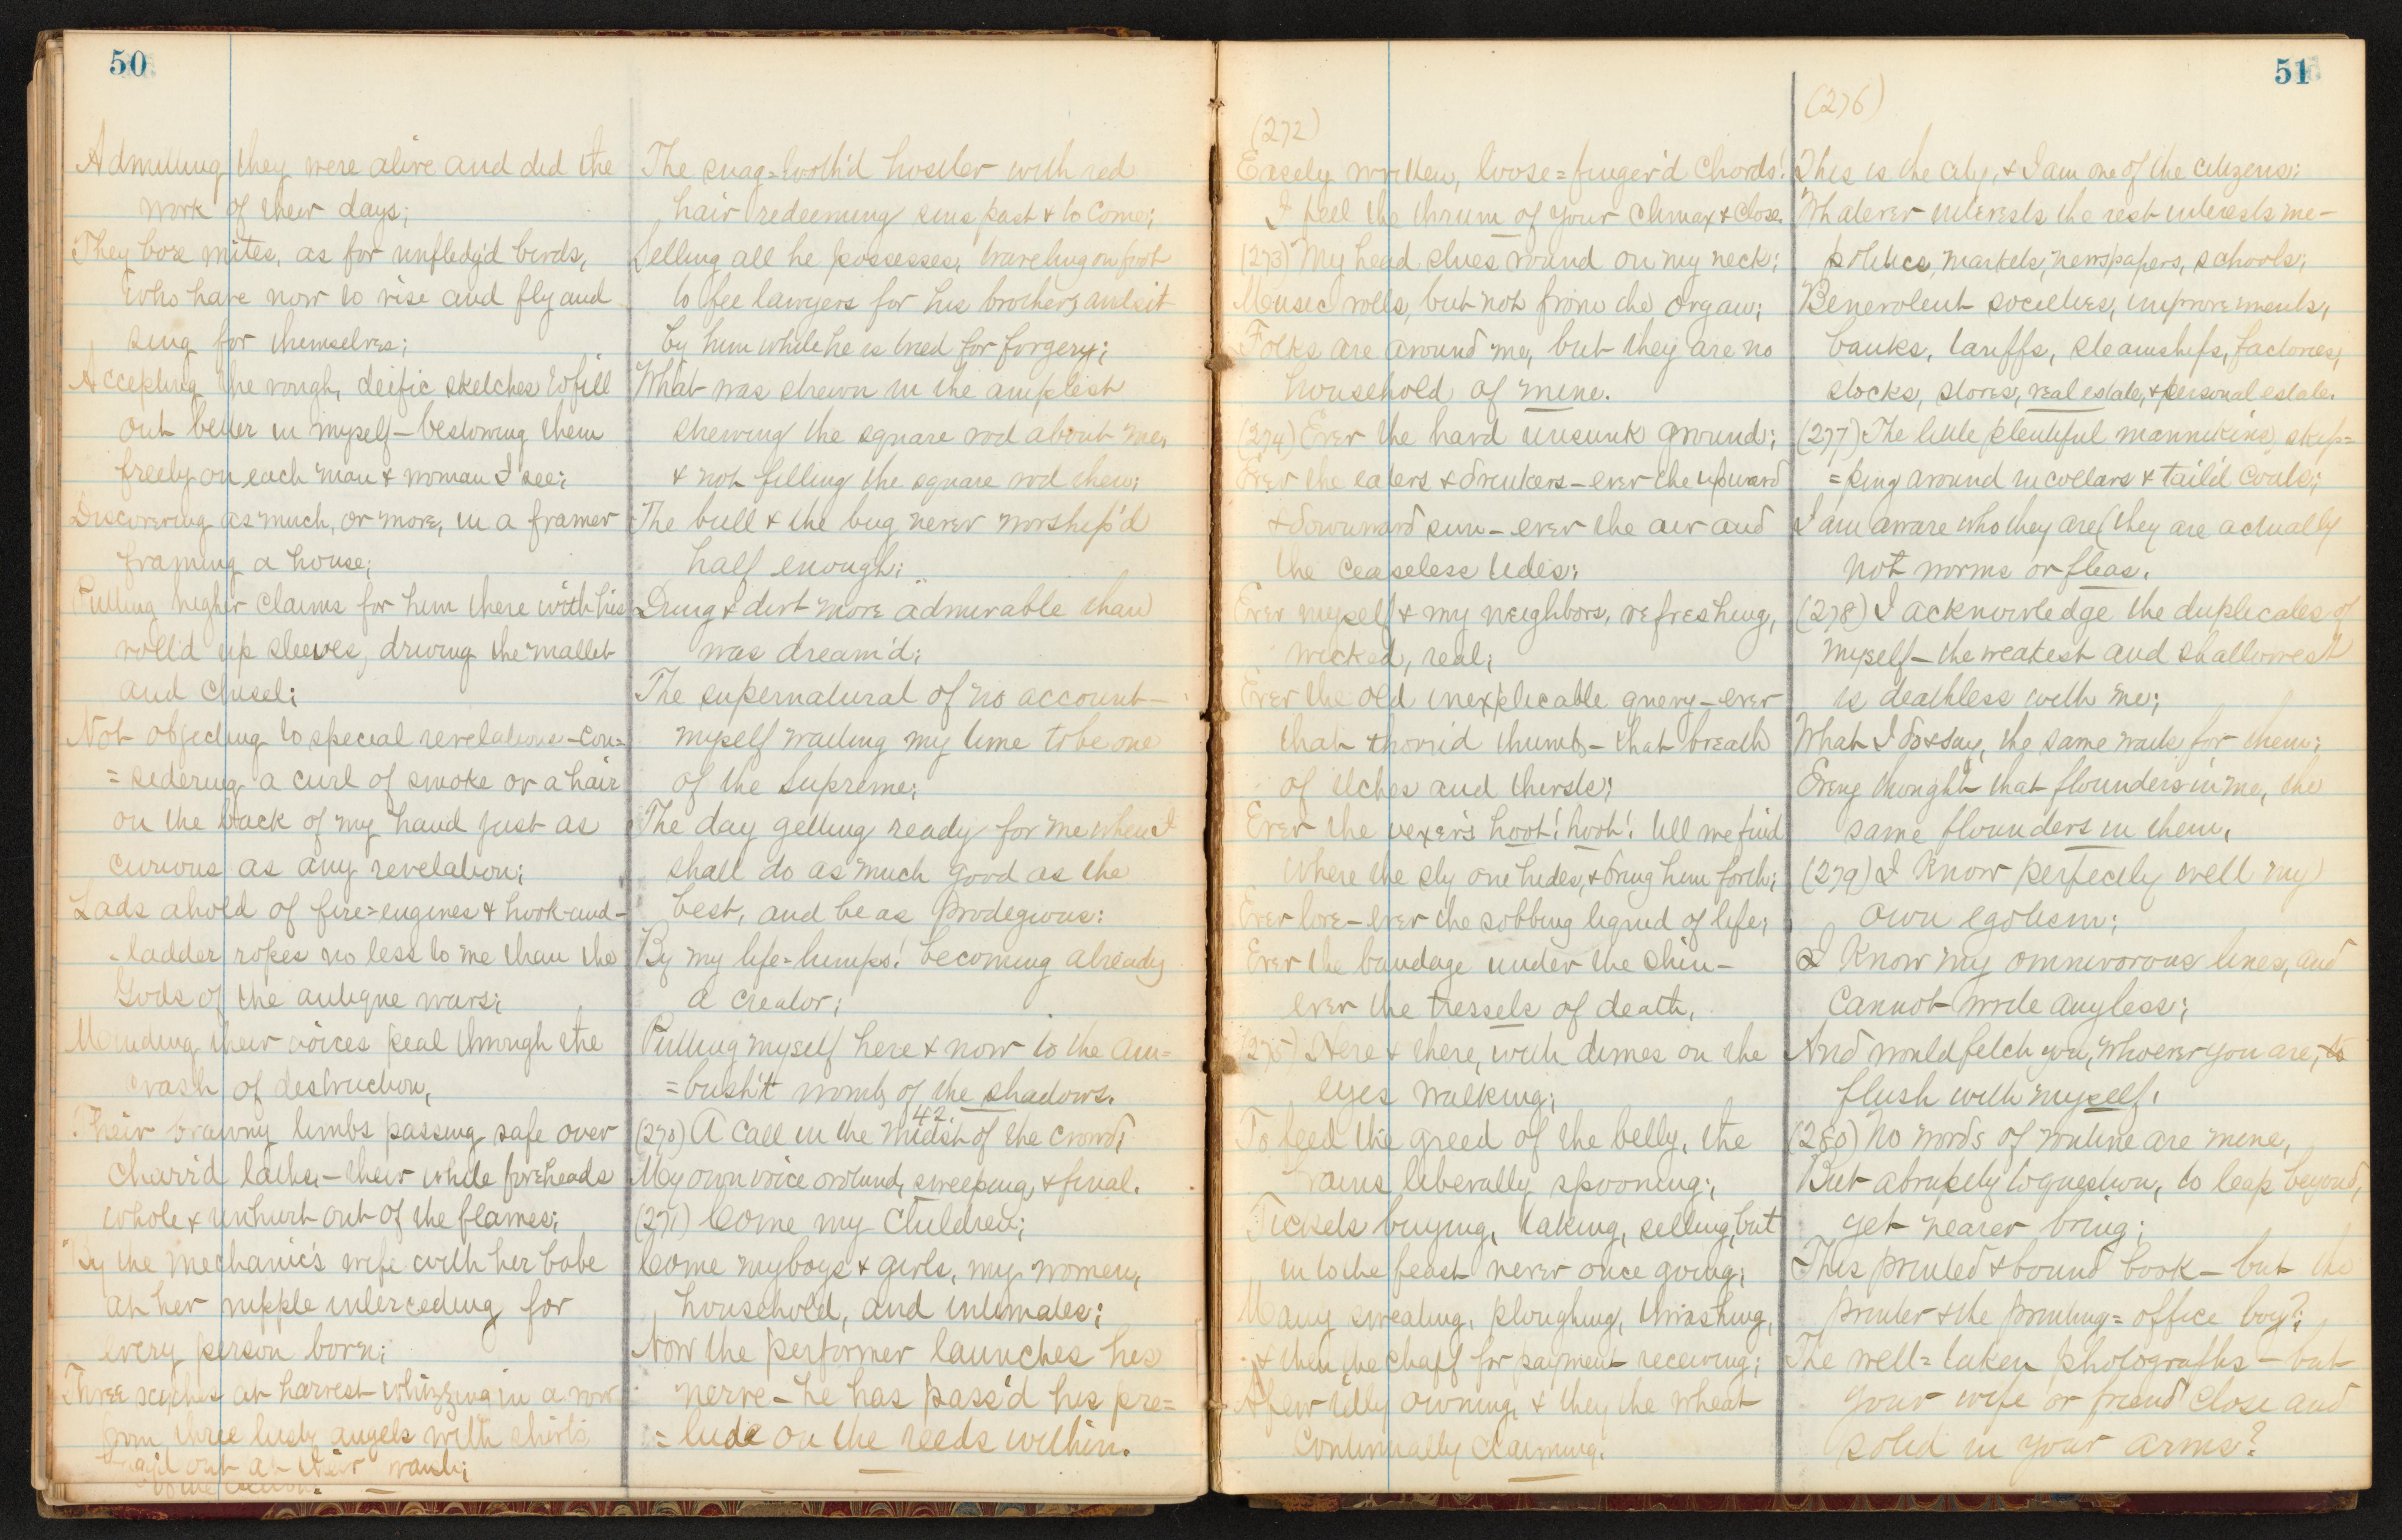 50
Admitting they were alive and did the
work of their days;
They bore mites, as for unfledg'd birds,
who have now to rise and fly and
sing for themselves;
Accepting the rough, deific sketches to fill
out better in myself—bestowing them
freely on each man & woman I see;
Discovering as much, or more, in a framer
framing a house;
Putting higher claims for him there with his
roll'd up sleeves, driving the mallet
and chisel;
Not objecting to special revelations—con=
=sidering a curl of smoke or a hair
on the back of my hand just as
curious as any revelation;
Lads ahold of fire=engines & hook-and-
-ladder ropes no less to me than the
Gods of the antique wars;
Minding their voices peal through the
crash of destruction,
Their brawny limbs passing safe over
charr'd laths,—their white foreheads
whole & unhurt out of the flames;
By the mechanic's wife with her babe
at her nipple interceding for
every person born;
Three scythes at harvest whizzing in a row
from three lusty angels with shirts
out at their waists;
The snag=tooth'd hostler with red
hair redeeming sins past & to come;
Selling all he possesses, traveling on foot
to fee lawyers for his brother, and sit
by him while he is tried for forgery;
What was strewn in the amplest
strewing the square rod about me,
& not filling the square rod then;
The bull & the bug never worship'd
half enough;
Dung & dirt more admirable than
was dream'd;
The supernatural of no account—
myself waiting my time to be one
of the Supreme;
The day getting ready for me when I
shall do as much good as the
best, and be as prodigious:
By my life=lumps! becoming already
a creator;
Putting myself here & now to the am=
=bush't womb of the shadows.
42.
(270) A call in the midst of the crowd;
My own voice orotund, sweeping, & final.
(271) Come my children;
Come my boys & girls, my women,
household, and intimates;
Now the performer launches his
nerve—he has pass'd his pre=
=lude on the reeds within.
51
(272)
Easely written, loose=finger'd chords!
I feel the thrum of your climax & close.
(273) My head slues round on my neck;
Music rolls, but not from the organ;
Folks are around me, but they are no
household of mine.
(274) Ever the hard unsunk ground;
Ever the eaters & drinkers—ever the upward
& downward sun—ever the air and
the ceaseless tides;
Ever myself & my neighbors, refreshing,
wicked, real;
Ever the old inexplicable query—ever
that thorn'd thumb,—that breath
of itches and thirsts;
Ever the vexer's hoot! hoot! till we find
where the sly one hides, & bring him forth;
Ever love—ever the sobbing liquid of life;
Ever the bandage under the chin—
ever the tressels of death.
(275) Here & there, with dimes on the
eyes walking;
To feed the greed of the belly, the
brains liberally spooning;
Tickets buying, taking, selling, but
in to the feast never once going;
Many sweating, ploughing, thrashing,
& then the chaff for payment receiving;
A few idly owning, & they the wheat
continually claiming.
(276)
This is the city, & I am one of the citizens;
Whatever interests the rest interests me—
politics, markets, newspapers, schools;
Benevolent societies, improvements,
banks, tariffs, steamships, factories,
stocks, stores, real estate, & personal estate.
(277) The little plentiful mannikins, skip=
=ping around in collars & tail'd coats;
I am aware who they are (they are actually
not worms or fleas.
(278) I acknowledge the duplicates of
myself—the weakest and shallowest
is deathless with me;
What I do & say, the same waits for them;
Every thought that flounders in me, the
same flounders in them,
(279) I know perfectly well my
own egotism;
I know my omnivorous lines, and
cannot write any less;
And would fetch you, whoever you are, to
flush with myself.
(280) No words of routine are mine,
But abruptly to question, to leap beyond,
yet nearer bring;
This printed & bound book—but the
printer & the printing=office boy?;
The well=taken photographs—but
your wife or friend close and
solid in your arms?